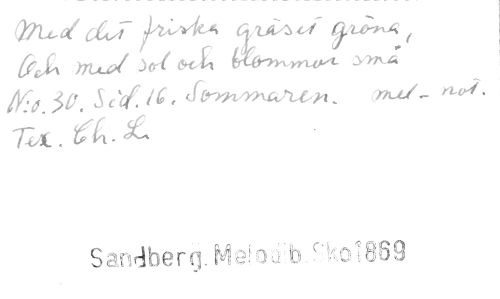 Med det friska gräset gröna,
Och med sol och blommor små
N:o. 30. Sid. 16. Sommaren. mel-not.
Tex. Ch. L.
Sandberg. Melodib. Sko 1869